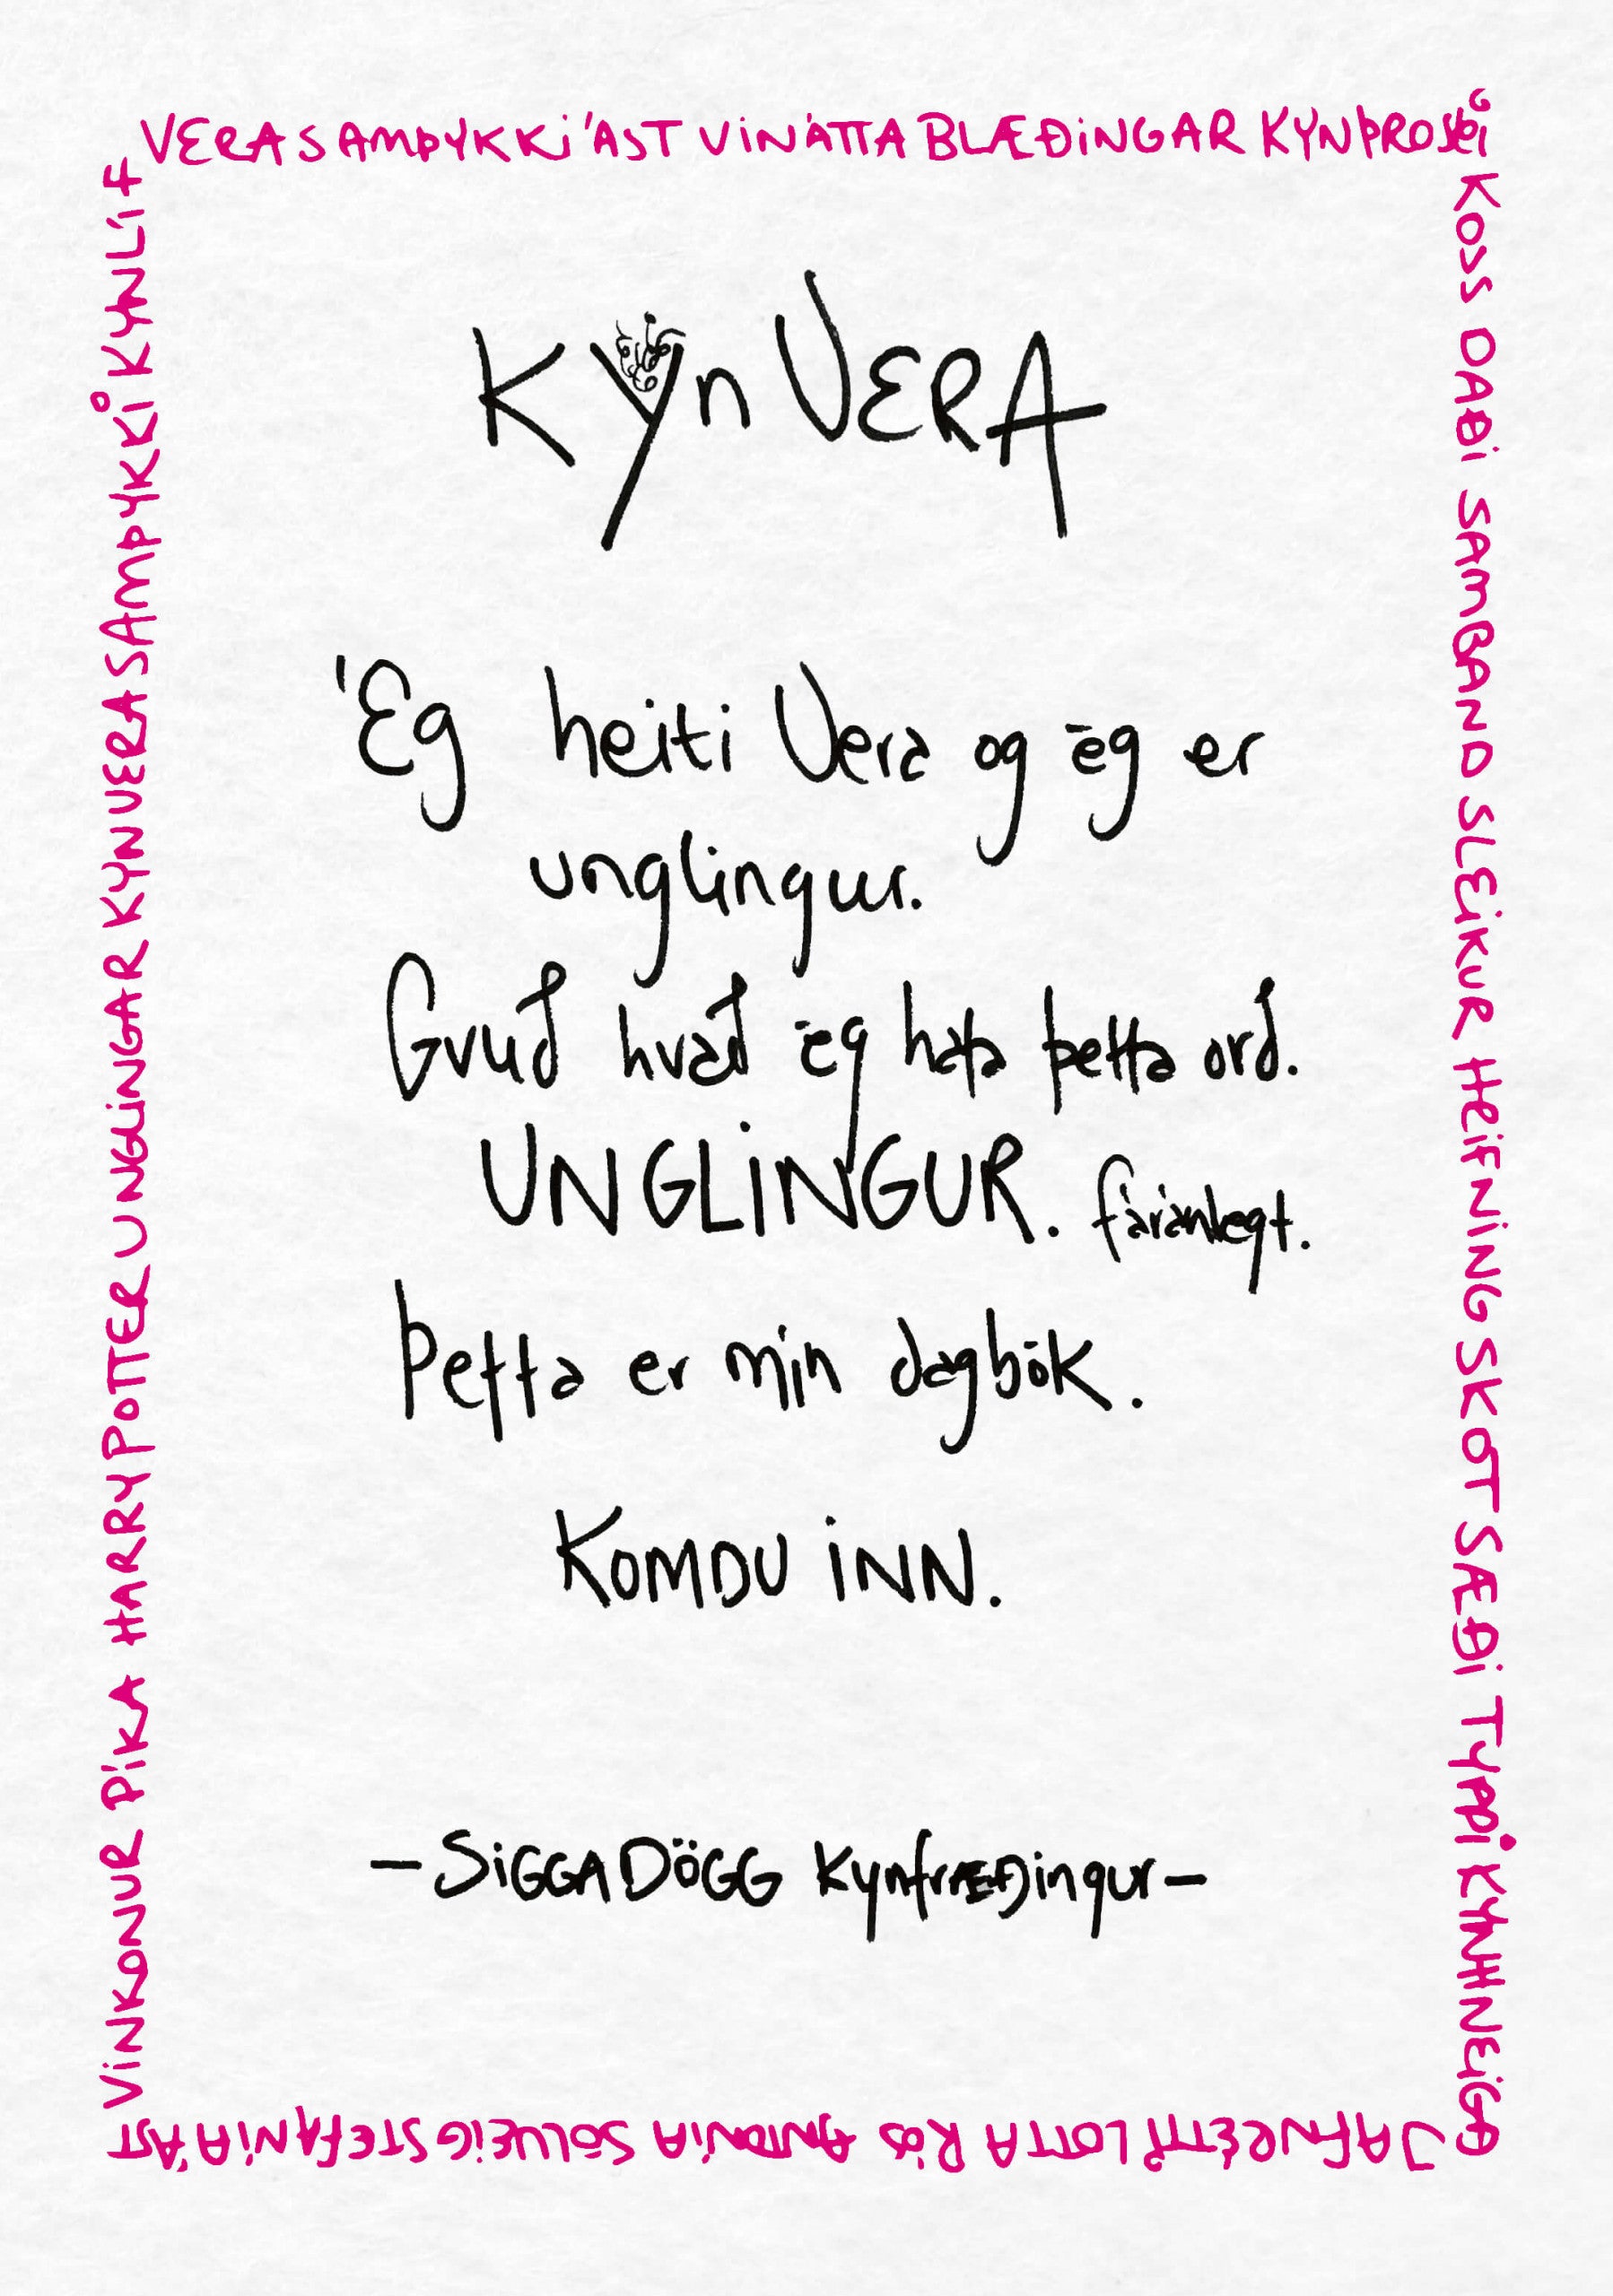 VERA SAMÞYKKI ÁST VINÁTTA BLÆÐINGAR KYNÞROSKI
KOSS DAÐI SAMBAND SLEIKUR HEFNING SKOT SÆÐI TYPPI KYNHNEIGÐ
JAFNRÉTTI LOTTA RÓS ANTONÍA SÓLVEIG STEFANÍA ÁST
VINKONUR PÍKA HARRY POTTER UNGLINGAR KYNVERA SAMÞYKKI KYNLÍF
KYNVERA
Ég heiti Vera og ég er
unglingur.
Gvuð hvað ég hata þetta orð.
UNGLINGUR. fáránlegt.
Þetta er mín dagbók.
KOMDU INN.
– SIGGA DÖGG kynfræðingur –